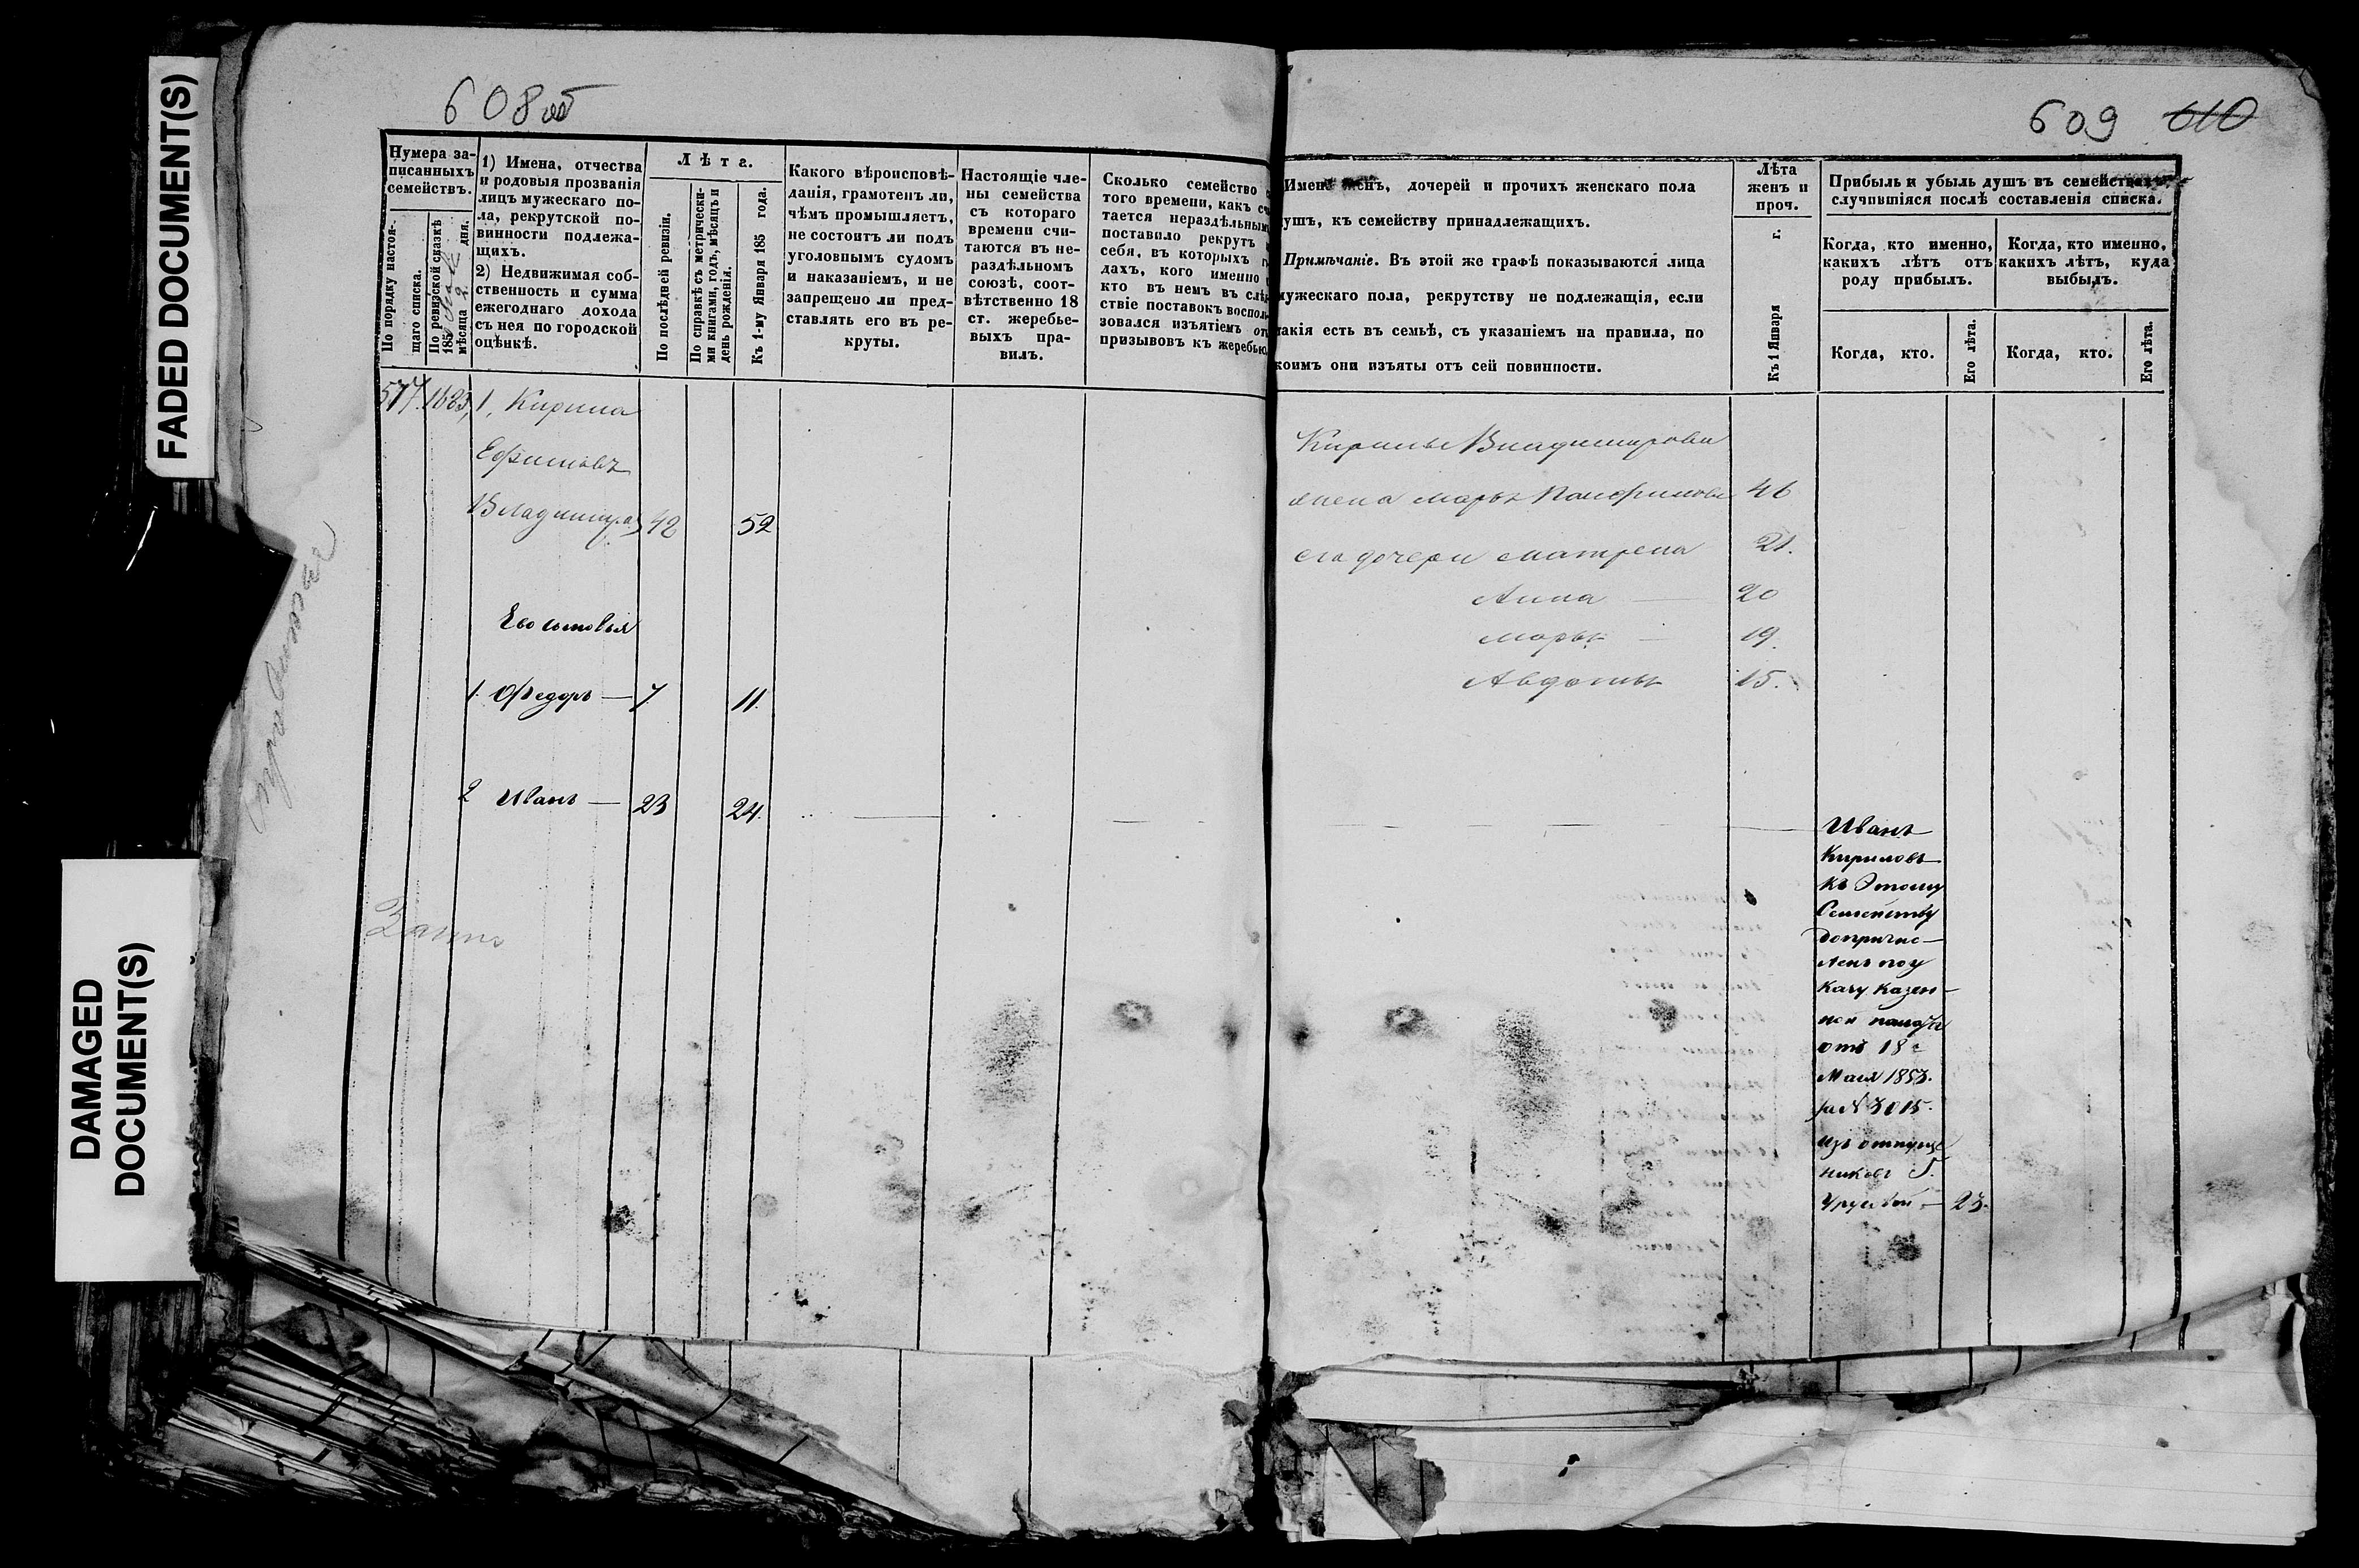 FADED DOCUMENT(S)
DAMAGED
DOCUMENT(S)
608 об
Нумера за-
писанныхъ
семействъ.
По порядку настоя-
щаго списка.
По ревизской сказкѣ
185
мѣсяца 2 дня.
1) Имена, отчества
и родовыя прозванія
лицъ мужескаго по-
ла, рекрутской по-
винности подлежа-
щихъ.
2) Недвижимая соб-
ственность и сумма
ежегоднаго дохода
съ нея по городской
оцѣнкѣ.
Лѣта.
По послѣдней ревизіи.
По справкѣ съ метрически-
ми книгами, годъ, мѣсяцъ и
день рожденія.
Къ 1-му Января 185 года.
Какого вѣроисповѣ-
данія, грамотенъ ли,
чѣмъ промышляетъ,
не состоитъ ли подъ
уголовнымъ судомъ
и наказаніемъ, и не
запрещено ли пред-
ставлять его въ ре-
круты.
Настоящіе чле-
ны семейства
съ котораго
времени счи-
таются въ не-
раздѣльномъ
союзѣ, соот-
вѣтственно 18
ст. жеребье-
выхъ пра-
вилъ.
Сколько семейство
того времени, какъ сч
тается нераздѣльным
поставило рекрутъ
себя, въ которыхъ г
дахъ, кого именно
кто въ немъ въ слѣд
ствіе поставокъ воспол
зовался изъятіемъ от
призывовъ къ жеребью
577. 1683, 1, Кирила
Ефимовъ
Владимировъ 42 52
1. Ѳедоръ — 7 11.
2 Иванъ — 23 24.
609 610
Имена женъ, дочерей и прочихъ женскаго пола
душъ, къ семейству принадлежащихъ.
Примѣчаніе. Въ этой же графѣ показываются лица
мужескаго пола, рекрутству не подлежащія, если
такія есть въ семьѣ, съ указаніемъ на правила, по
коимъ они изъяты отъ сей повинности.
Лѣта
женъ и
проч.
Къ 1 Января г.
Прибыль и убыль душъ въ семействахъ,
случившіяся послѣ составленія списка.
Когда, кто именно,
какихъ лѣтъ отъ
роду прибылъ.
Когда, кто.
Его лѣта.
Когда, кто именно,
какихъ лѣтъ, куда
выбылъ.
Когда, кто.
Его лѣта.
Кирилы Владимирова
жена Марья Панфилова 46
его дочери Матрена 21.
Анна — 20
Марья — 19.
Авдотья 15.
Иванъ
Кириловъ
къ Этому
Семейству
допричис-
ленъ по у
казу Казен-
ной палаты
отъ 18 е
Мая 1853.
за N 3015.
изъ отпуще
никовъ Г.
Урусовой — 23.